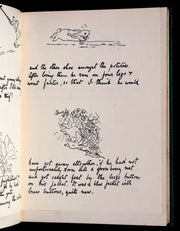 and the other shoe amongst the potatoes.
After losing them he ran on four legs &
went faster, so that I think he would
have got away altogether, if he had not
unfortunately run into a gooseberry net
and got caught fast by the large buttons
on his jacket. It was a blue jacket with
brass buttons, quite new.